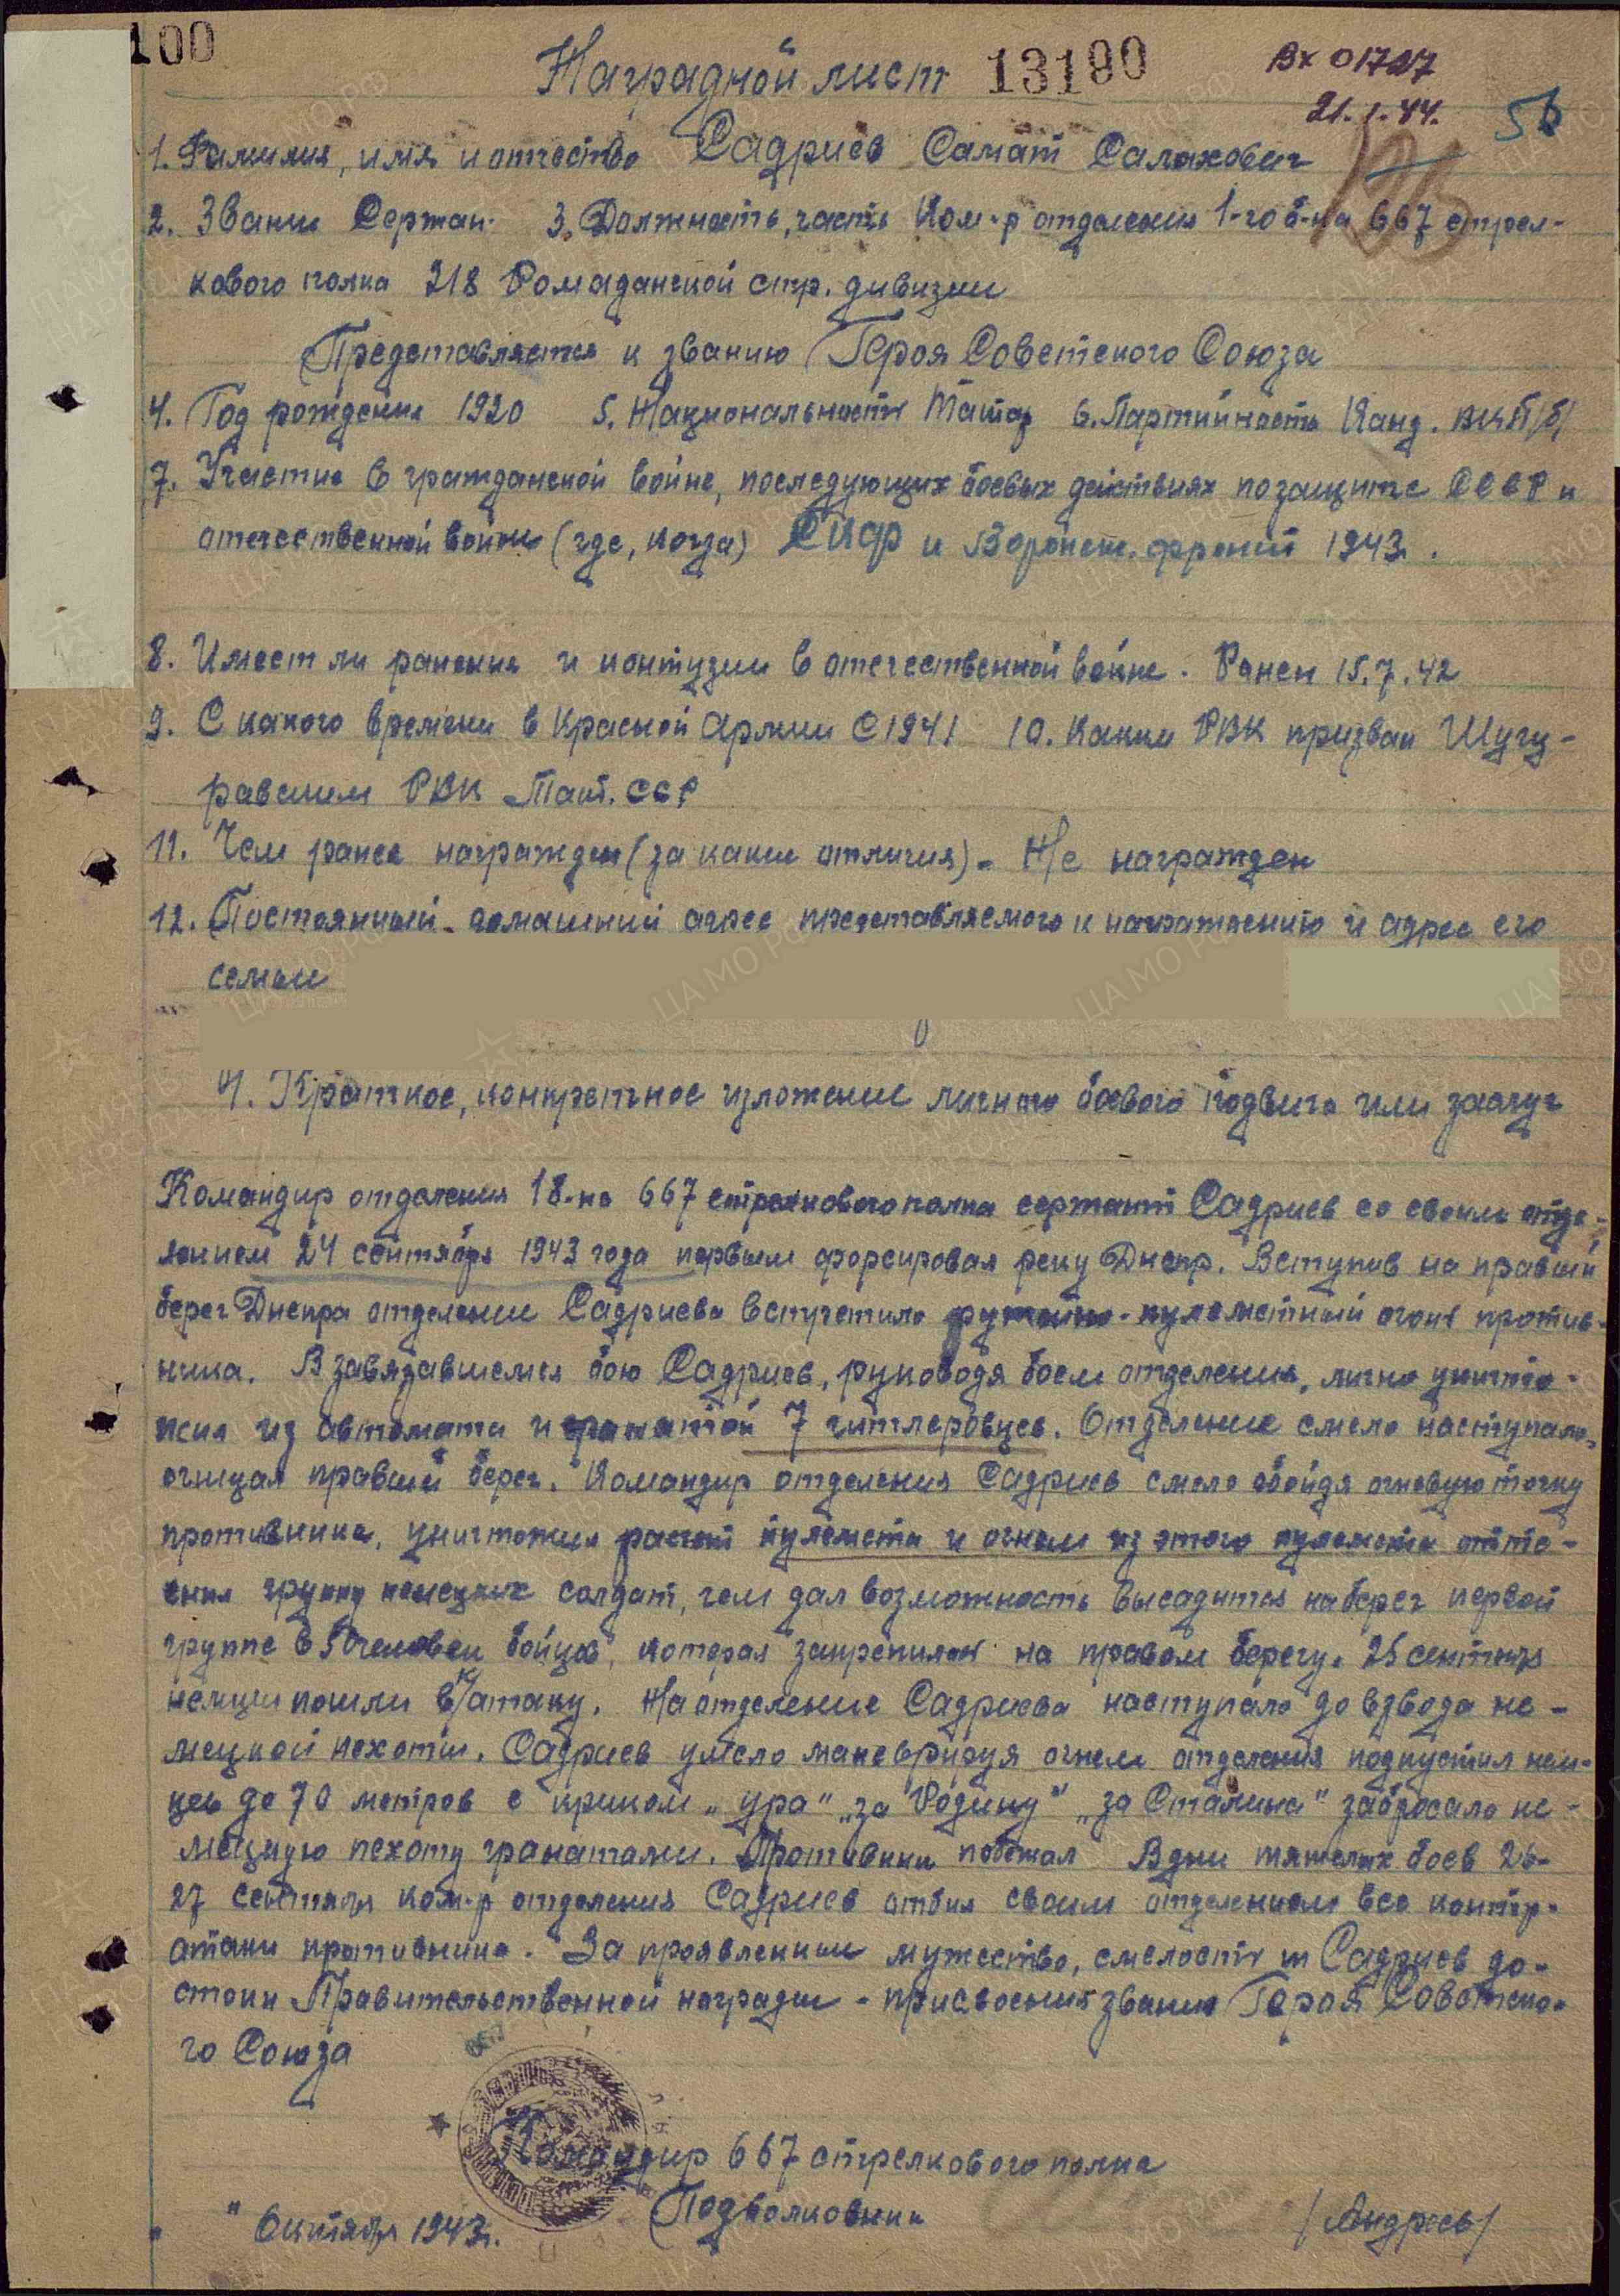 100
Наградной лист 13190 Вх 01727
21.1.44.
1. Фамилия, имя и отчество Садриев Самат Салахович
2. Звание Сержан. 3. Должность, часть Ком-р отделения 1-го б-на 667 стрел-
кового полка 218 Ромаданской стр. дивизии
Представляется к званию Героя Советского Союза
4. Год рождения 1920 5. Национальность Татар 6. Партийность Канд. ВКП/б/
7. Участие в гражданской войне, последующих боевых действиях по защите СССР и
отечественной войны (где, когда) и Воронеж. фронт 1943.
8. Имеет ли ранения и контузии в отечественной войне. Ранен 15.7.42
9. С какого времени в Красной Армии С 1941 10. Каким РВК призван Шугу-
равским РВК Тат. ССР
11. Чем ранее награжден (за какие отличия). Не награжден
12. Постоянный домашний адрес представляемого к награждению и адрес его
семьи
Краткое, конкретное изложение личного боевого подвига или заслуг
Командир отделения 1 б-на 667 стрелкового полка сержант Садриев со своим отде-
лением 24 сентября 1943 года первым форсировал реку Днепр. Вступив на правый
берег Днепра отделение Садриева встретило ружейно-пулеметный огонь против-
ника. В завязавшемся бою Садриев, руководя боем отделения, лично уничто-
жил из автомата и гранатой 7 гитлеровцев. Отделение смело наступало,
очищая правый берег. Командир отделения Садриев смело обойдя огневую точку
противника, уничтожил расчет пулемета и огнем из этого пулемета отте-
снил группу немецких солдат, чем дал возможность высадится на берег первой
группе в 50 человек бойцов, которая закрепилась на правом берегу. 25 сентября
немцы пошли в к/атаку. На отделение Садриева наступало до взвода не-
мецкой пехоты. Садриев умело маневрируя огнем отделения подпустил нем-
цев до 70 метров с криком „ура" „за Родину" „за Сталина" забросало не-
мецкую пехоту гранатами. Противник побежал В дни тяжелых боев 26-
27 сентября ком-р отделения Садриев отбил своим отделением все контр-
атаки противника. За проявленные мужество, смелость т Садриев до-
стоин Правительственной награды - присвоения звания Героя Советско-
го Союза
Командир 667 стрелкового полка
Подполковник /Андреев/
" " Октября 1943г.